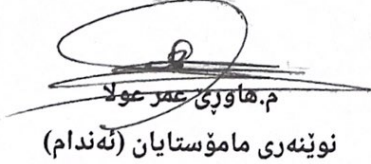 م.هاوڕێ عمر عولا
نوێنەری مامۆستایان (ئەندام)